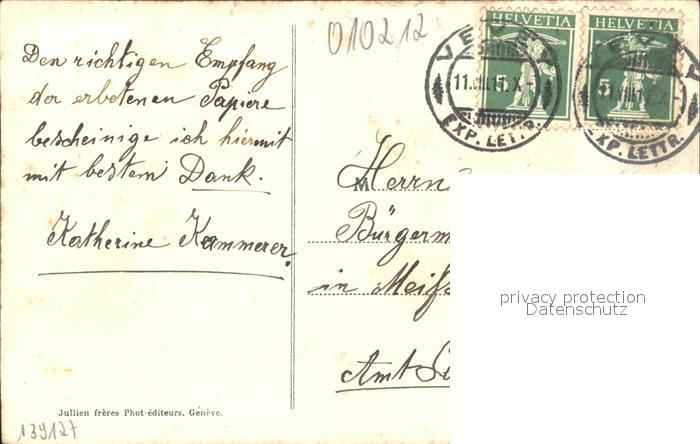 010212
HELVETIA HELVETIA
VEVEY
11.VII.15.X
EXP. LETTR.
5
EXP. LETTR.
Den richtigen Empfang
der erbetenen Papiere
bescheinige ich hiermit
mit bestem Dank.
Katherine Kammerer.
M
Herrn
Bürgerm
in Meiß
Amt
privacy protection
Datenschutz
Jullien frères Phot-éditeurs, Genève.
139127